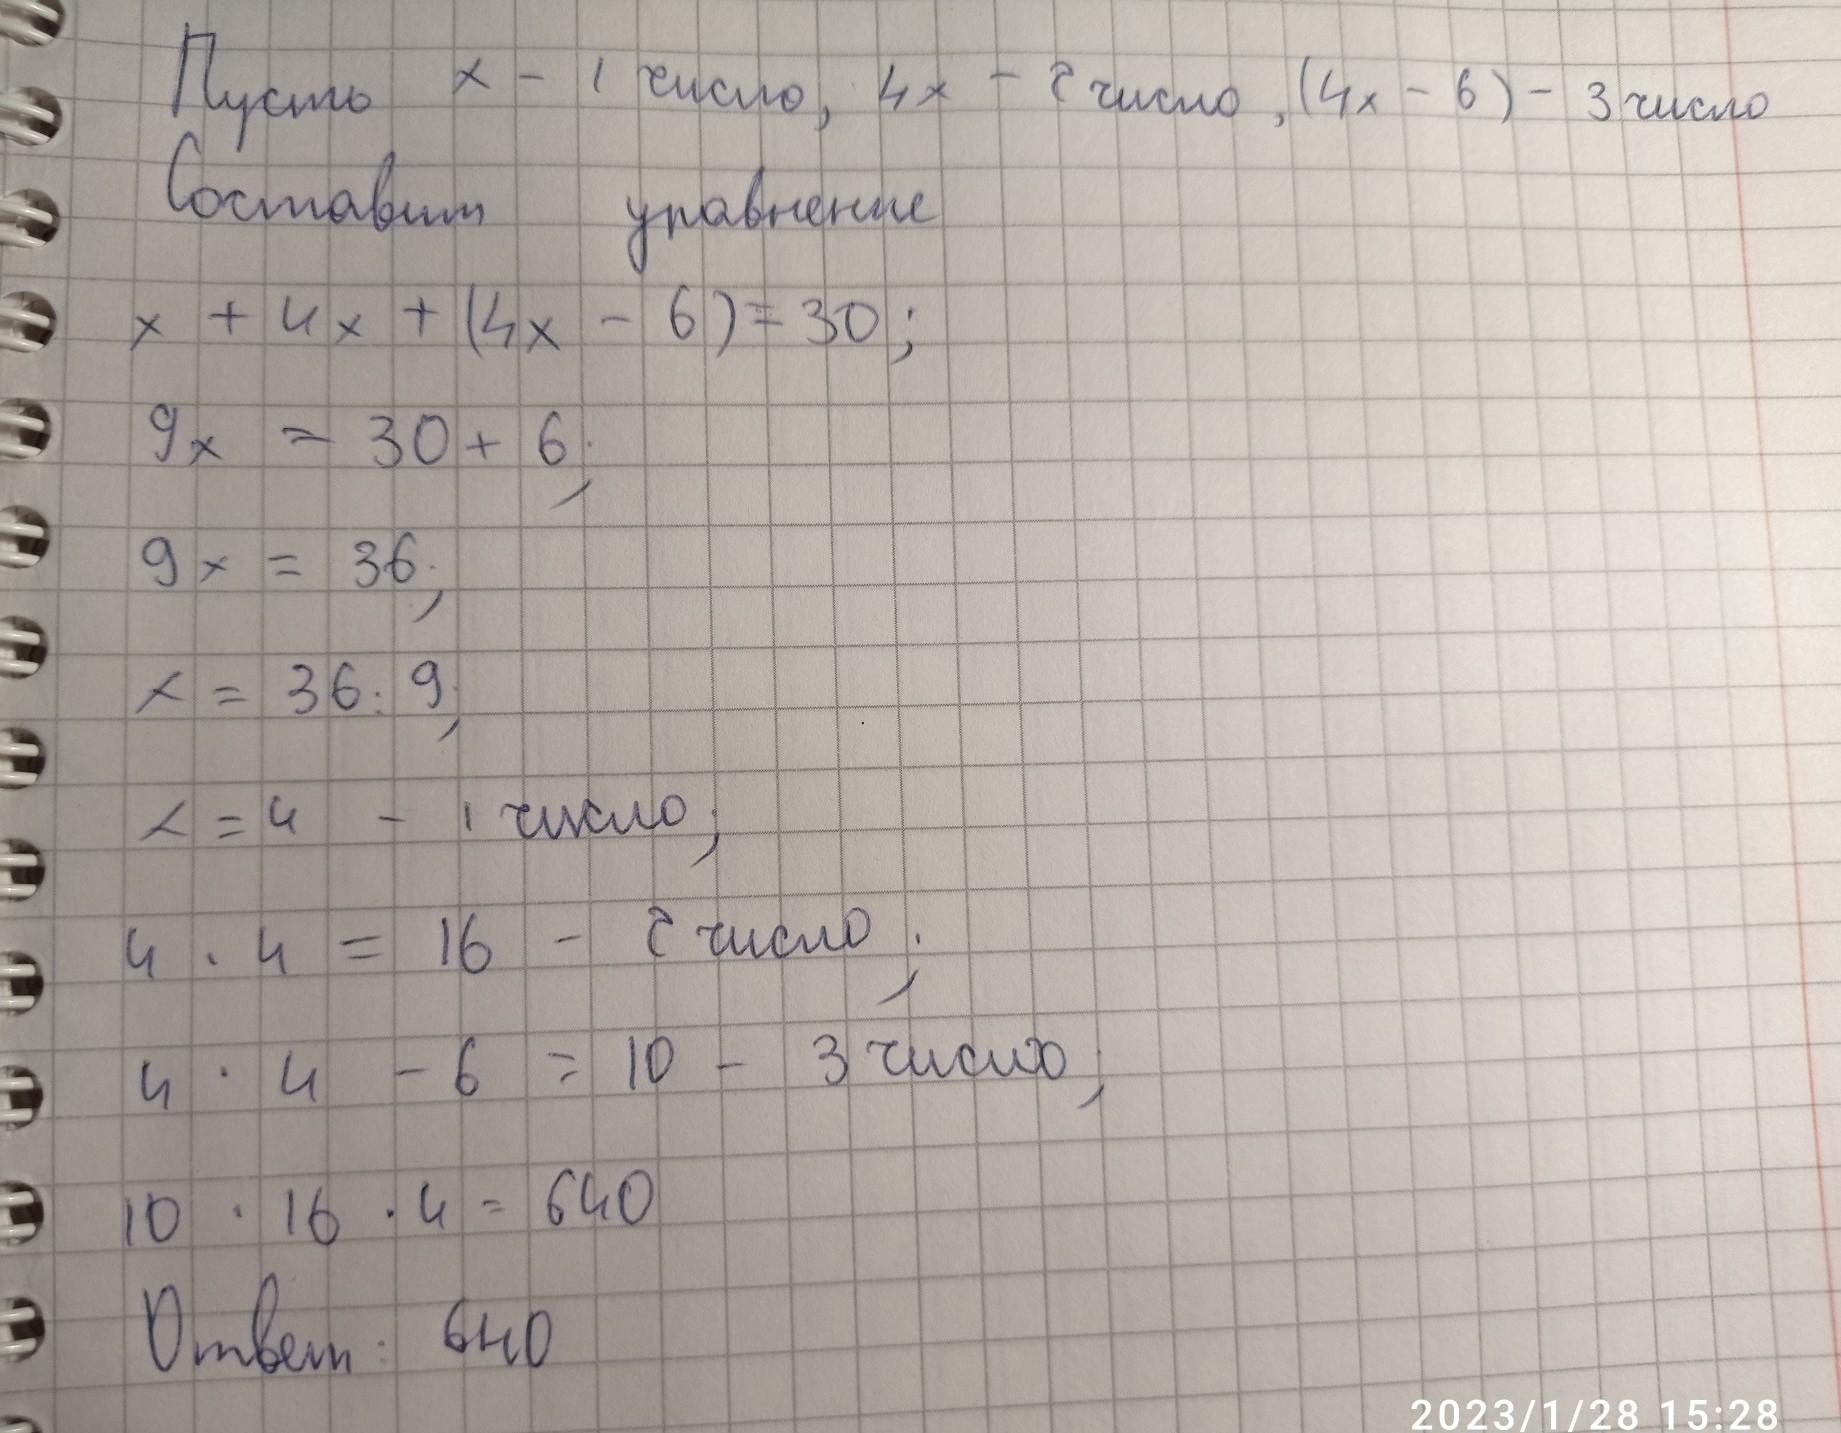 Пусть x - 1 число, 4x - 2 число, (4x - 6) - 3 число
Составим уравнение
x + 4x + (4x - 6) = 30;
9x = 30 + 6;
9x = 36;
x = 36 : 9;
x = 4 - 1 число;
4 · 4 = 16 - 2 число;
4 · 4 - 6 = 10 - 3 число;
10 · 16 · 4 = 640
Ответ: 640
2023/1/28 15:28